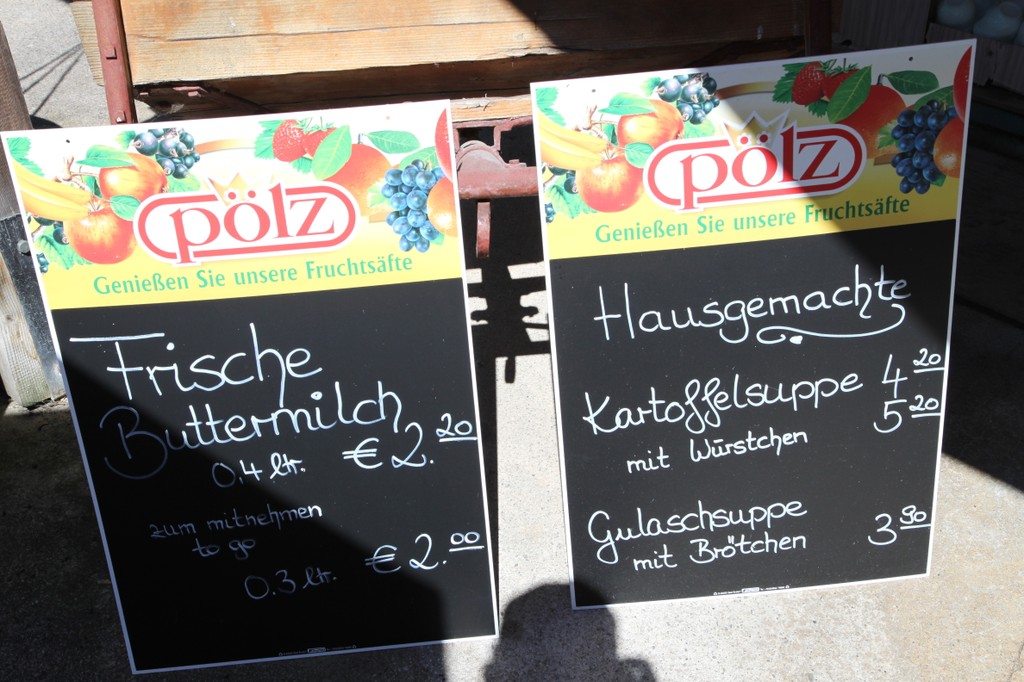 pölz
Genießen Sie unsere Fruchtsäfte
Frische
Buttermilch
0,4 ltr. € 2.20
zum mitnehmen
to go
0.3 ltr. € 2.00
pölz
Genießen Sie unsere Fruchtsäfte
Hausgemachte
Kartoffelsuppe 4 20
mit Würstchen 5 20
Gulaschsuppe
mit Brötchen 3 90